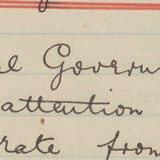 al Governm
attention
rate from